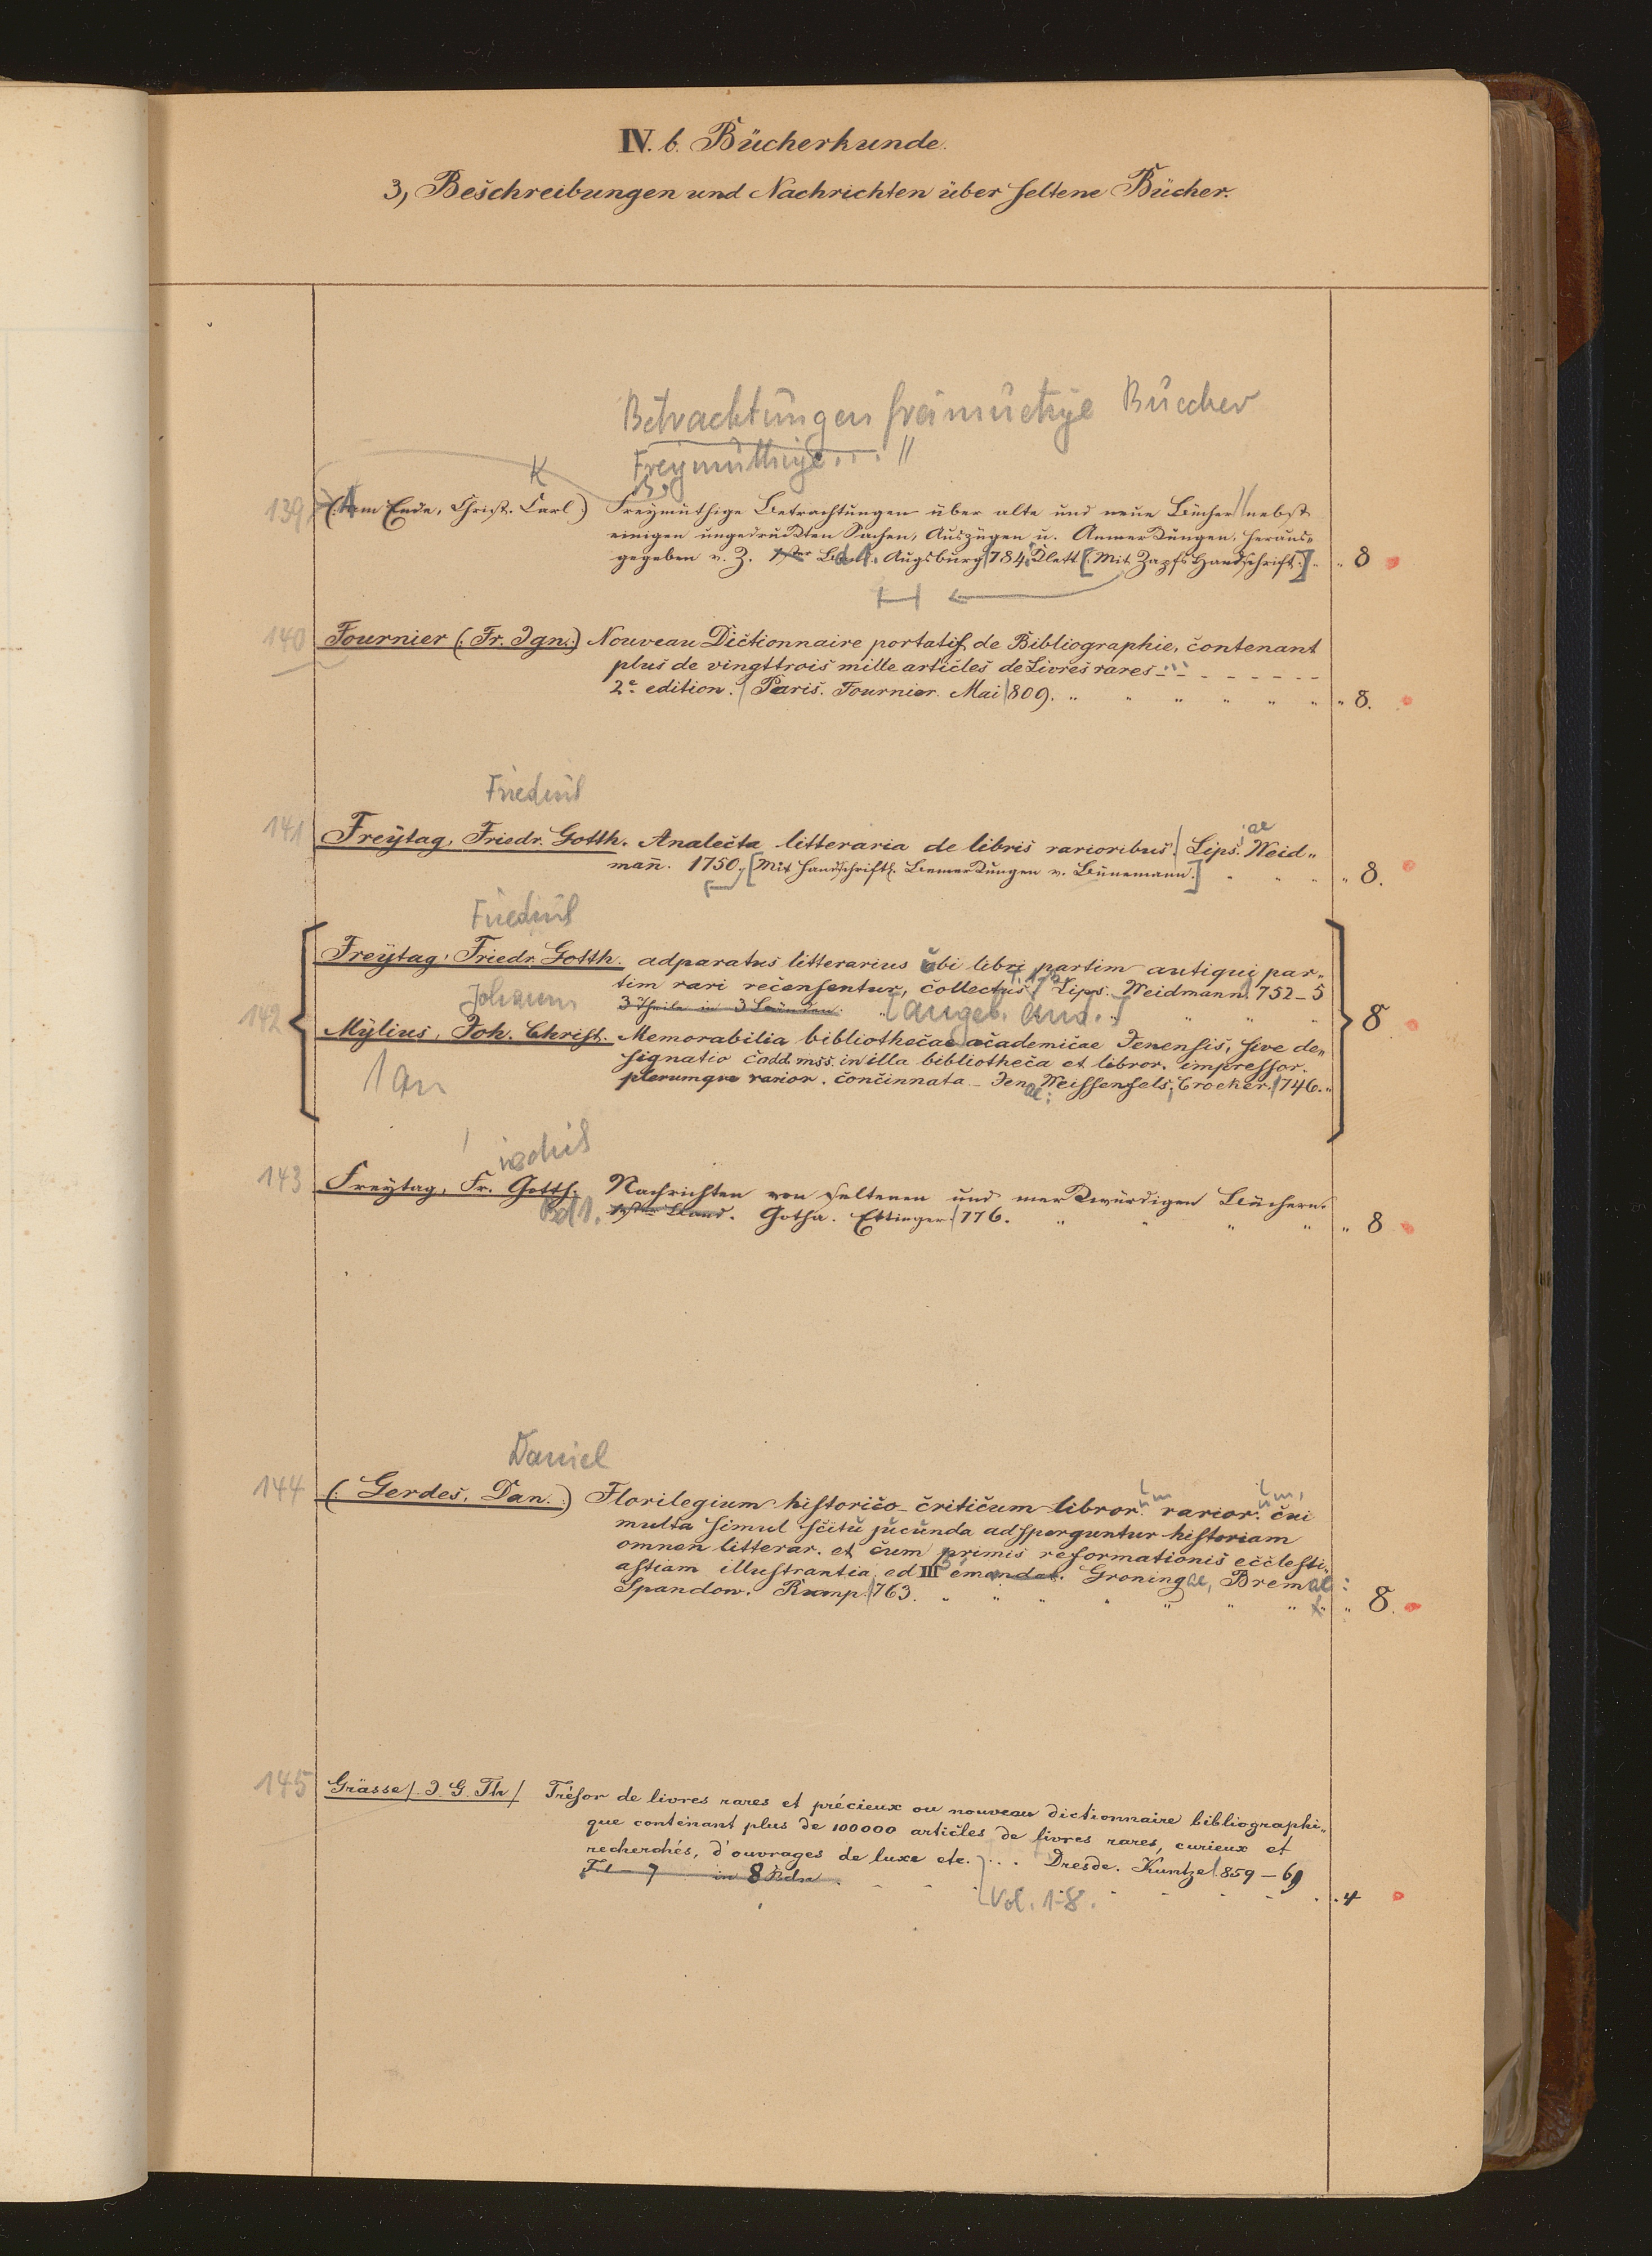 IV. b. Bücherkunde.
3, Beschreibungen und Nachrichten über seltene Bücher.
Betrachtungen freimüthige Bücher
Freymüthige... //
K
139 (: Am Ende, Christ. Carl:) Freymüthige Betrachtungen über alte und neue Bücher // nebst
einigen ungedruckten Sachen, Auszügen u. Anmerkungen, heraus-
gegeben v. Z. 1ster Bd 1. Augsburg 784. Klett [: Mit Zapfs Handschrift :] 8
140 Fournier (: Fr. Ign.:) Nouveau Dictionnaire portatif de Bibliographie, contenant
plus de vingttrois mille articles de Livres rares...
2e edition. / Paris. Fournier. Mai 809. 8.
Friedrich
141 Freytag, Friedr. Gotth. Analecta litteraria de libris rarioribus. / Lipsiae Weid-
mañ. 1750. [Mit handschriftl. Bemerkungen v. Bünemann.] 8.
Friedrich
Freytag, Friedr. Gotth. adparatus litterarius ubi libri partim antiqui par-
tim rari recensentur, collectus / Lips. Weidmann 752-5
Johann 3 Theile in 3 Bänden. [angeb. and.]
142 Mylius, Joh. Christ. Memorabilia bibliothecae academicae Jenensis, sive de- 8
1 an signatio codd. mss. in illa bibliotheca et libror. impressor.
plerumque rarior. concinnata - Jenae: Weissenfels; Croeker. 746.
143 Freytag, Fr. Gotth. Nachrichten von seltenen und merkwürdigen Büchern.
Bd 1. 1ster Band. Gotha. Ettinger 776. 8
Daniel
144 (: Gerdes, Dan. :) Florilegium historico-criticum librorum rariorum, cui
multa simul scitu jucunda adsperguntur historiam
omnen litterar. et cum primis reformationis ecclesi-
astiam illustrantia. ed III emendat. Groningae, Bremae:
Spandow. Rump. 763. 8.
145 Grässe /. J. G. Th / Trésor de livres rares et précieux ou nouveau dictionnaire bibliographi-
que contenant plus de 100000 articles de livres rares, curieux et
recherchés, d'ouvrages de luxe etc. ... Dresde. Kuntze 859-69
T 7 in 8 Bdn. [Vol. 1-8. 4